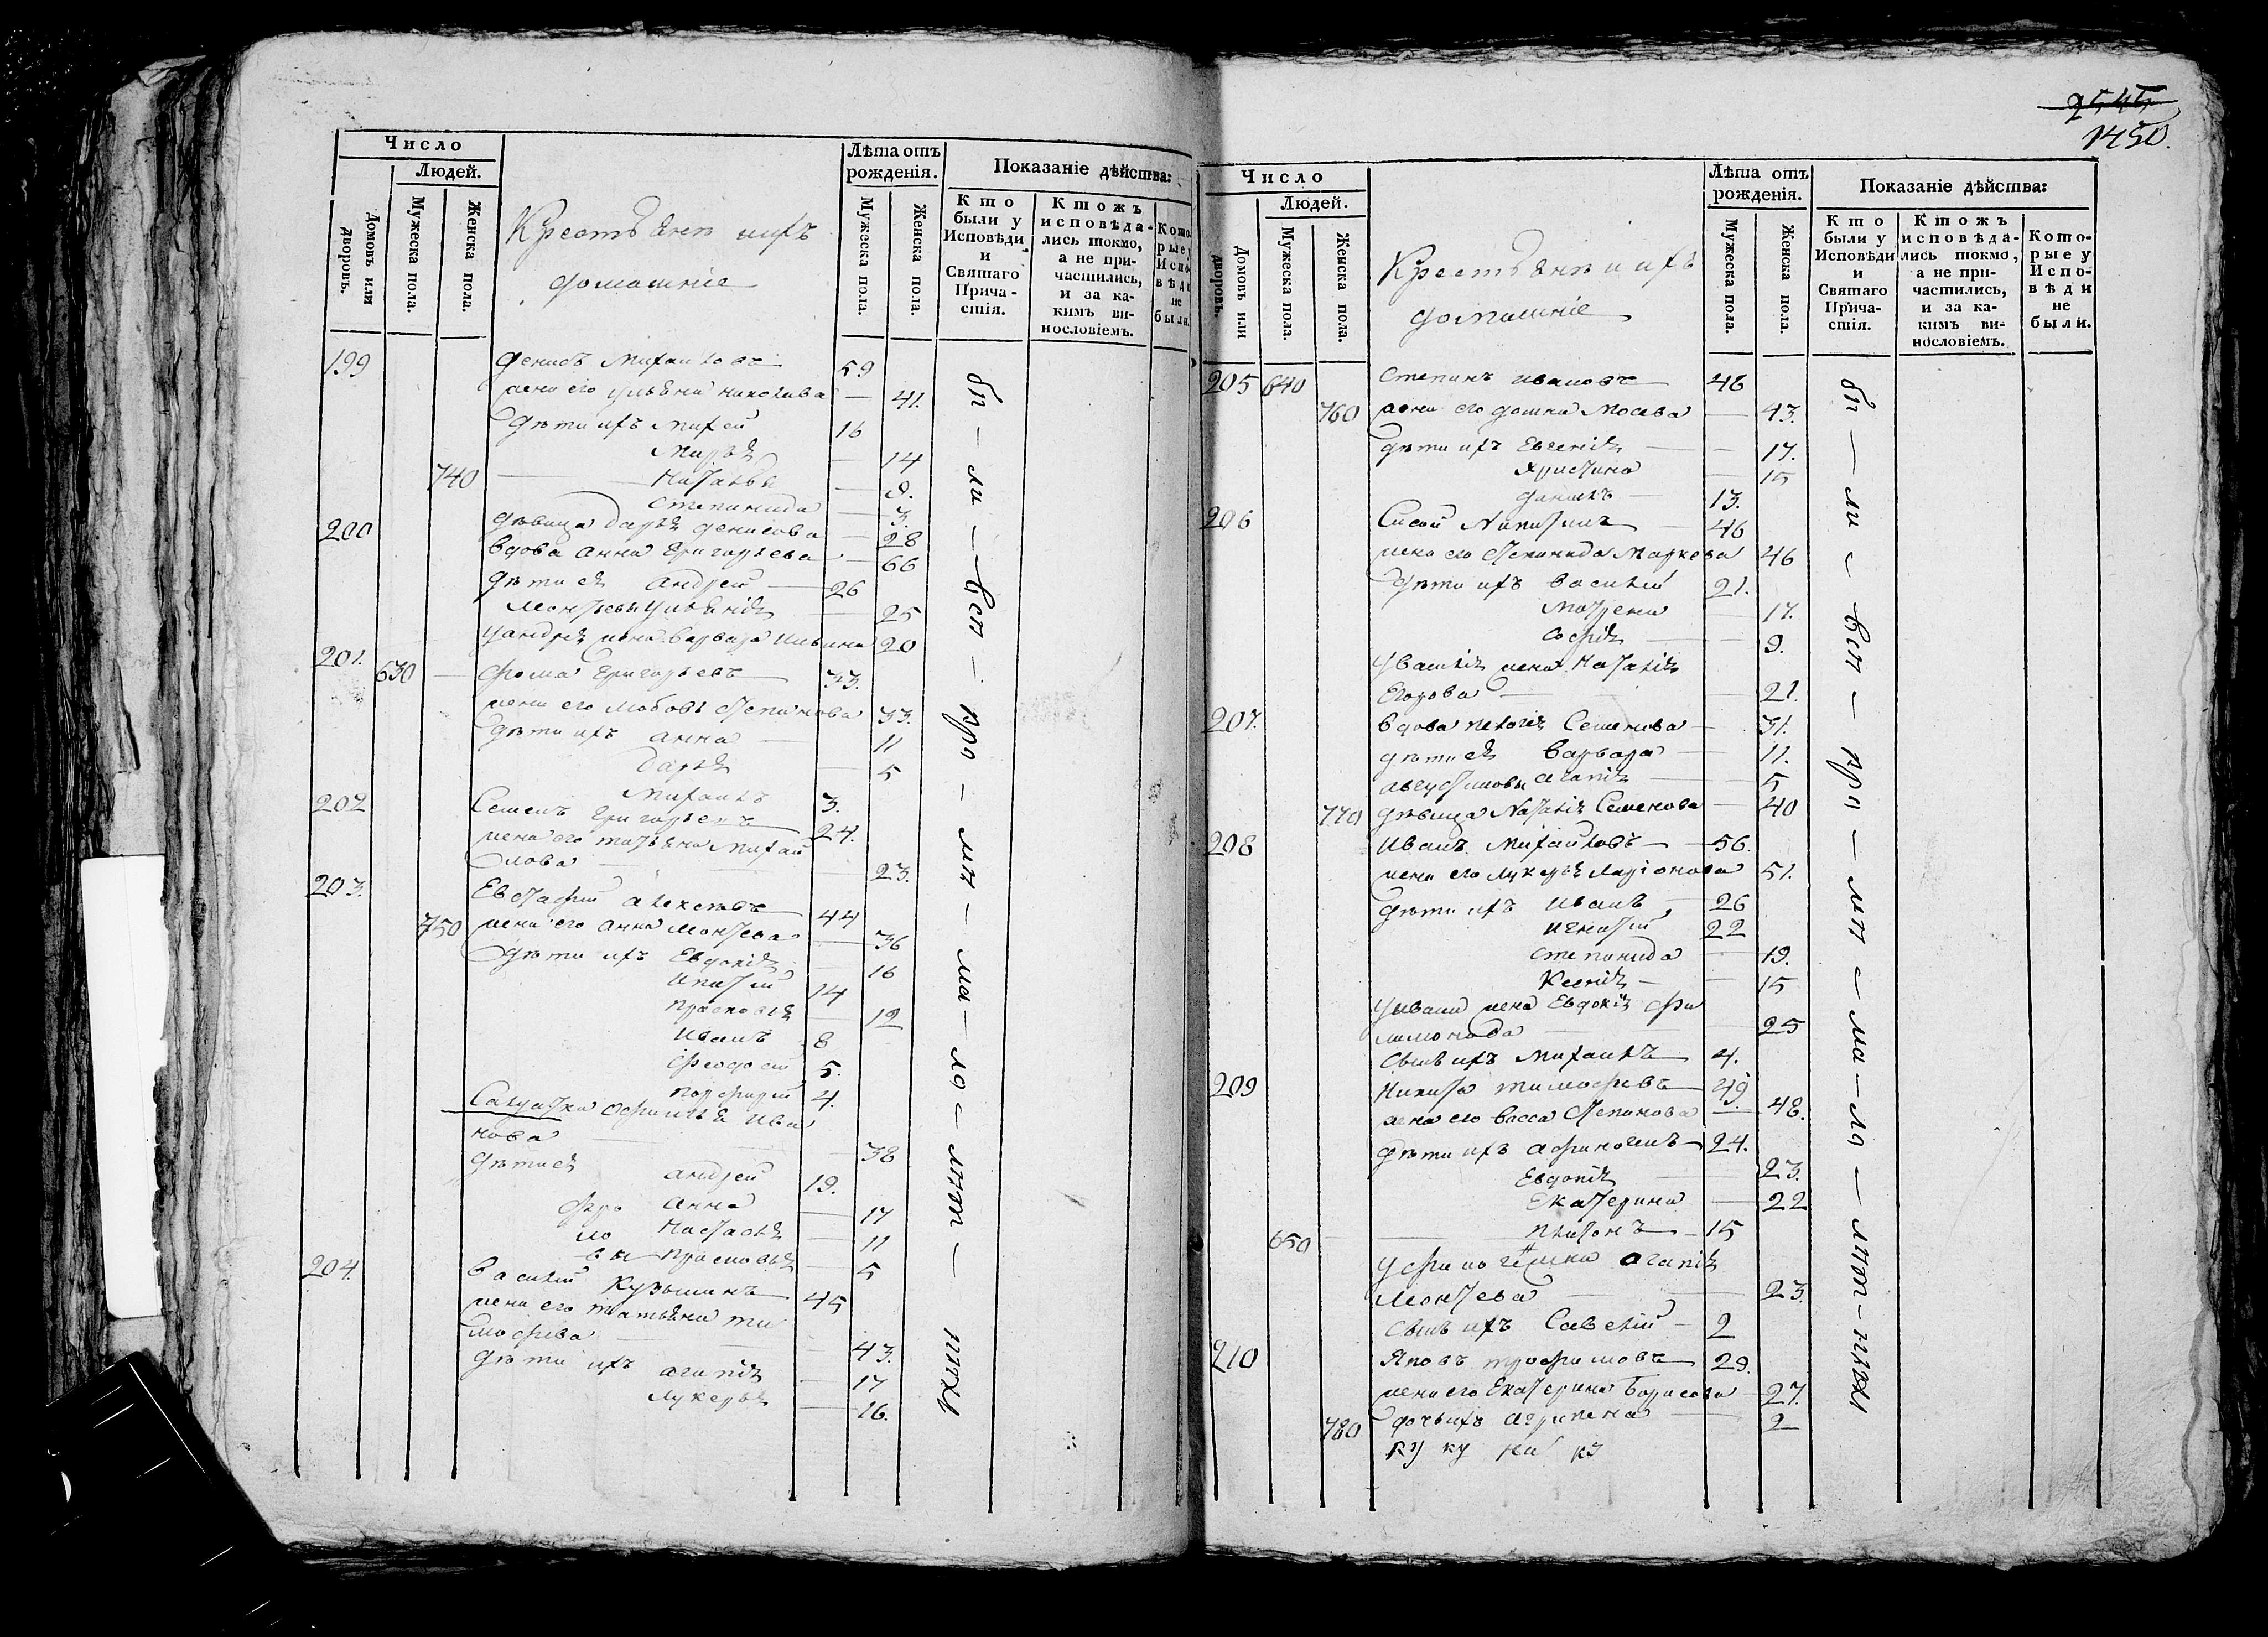 Число
Людей.
Домовъ или дворовъ.
Мужеска пола.
Женска пола.
Крестьяне и ихъ
домашніе
Лѣта отъ рожденія.
Мужеска пола.
Женска пола.
Показаніе дѣйства:
Кто были у Исповѣди и Святаго Причастія.
Ктожъ исповѣдались токмо, а не причастились, и за какимъ винословіемъ.
Которые у Исповѣди не были.
199 Денисъ Михайловъ 59
жена его Ульяна 41.
дѣти ихъ 16
Марья 14
740 Наталья 9.
Степанида 3.
200 дѣвица Дарья Денисова 28
вдова Анна Григорьева 66
дѣти ея Андрей 26
25
у Андрея жена Варвара Ильина 20
201. 630 Фома Григорьевъ 33.
жена его Любовь Степанова 33.
дѣти ихъ Анна 11
Дарья 5
Михаилъ 3.
202 Семенъ Григорьевъ 24.
жена его Татьяна Михай
лова 23.
203. Евстафій Алексѣевъ 44
750 жена его Анна 36
дѣти ихъ Евдокія 16
Ипатій 14
Прасковья 12
Иванъ 8
Феодосій 5.
Порфирій 4.
Салдатка Офимья Ива
нова 38
дѣти ея Андрей 19.
фро Анна 17
ло Настасья 11
вы Прасковья 5
204. Василій Кузьминъ 45
жена его Татьяна Ти
мофѣева 43.
дѣти ихъ Агапія 17
Лукерья 16.
бы — ли — всѣ —
2545
1450.
Число
Людей.
Домовъ или дворовъ.
Мужеска пола.
Женска пола.
Крестьяне и ихъ
домашніе
Лѣта отъ рожденія.
Мужеска пола.
Женска пола.
Показаніе дѣйства:
Кто были у Исповѣди и Святаго Причастія.
Ктожъ исповѣдались токмо, а не причастились, и за какимъ винословіемъ.
Которые у Исповѣди не были.
205 640 Степанъ Ивановъ 46
760 жена его Домна 43.
дѣти ихъ Евгенія 17.
Христина 15
Даниилъ 13.
206 Сисой Никитинъ 46
жена его Степанида Маркова 46
дѣти ихъ Василій 21.
Матрена 17.
Софія 9.
у Василія жена Наталія
Егорова 21.
207. вдова Пелагея Семенова 31.
дѣти ея Варвара 11.
Августиновы Агапія 5
770 дѣвица Наталія Семенова 40
208 Иванъ Михайловъ 56.
жена его Лукерья Ларіонова 51.
дѣти ихъ Иванъ 26
Игнатій 22
Степанида 19.
Ксенія 15
у Ивана жена Евдокія Фи
лимонова 25
сынъ ихъ Михаилъ 4.
209 Никита Тимофѣевъ 49.
жена его Васса Степанова 48.
дѣти ихъ Афиногенъ 24.
Евдокія 23.
Екатерина 22
650 Платонъ 15
жена Агапія
23.
сынъ ихъ Савелій 2
210 Яковъ Трофимовъ 29.
жена его Екатерина Борисова 27.
780 дочь ихъ Агрипена 2
бы — ли — всѣ —